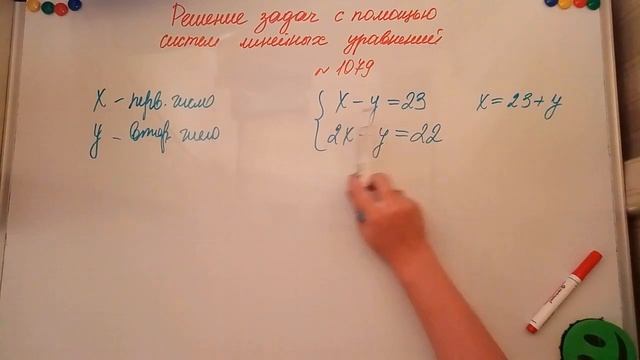 Решение задач с помощью
систем линейных уравнений
~ 1079
x - перв. число
y - втор. число
x - y = 23
2x - y = 22
x = 23 + y